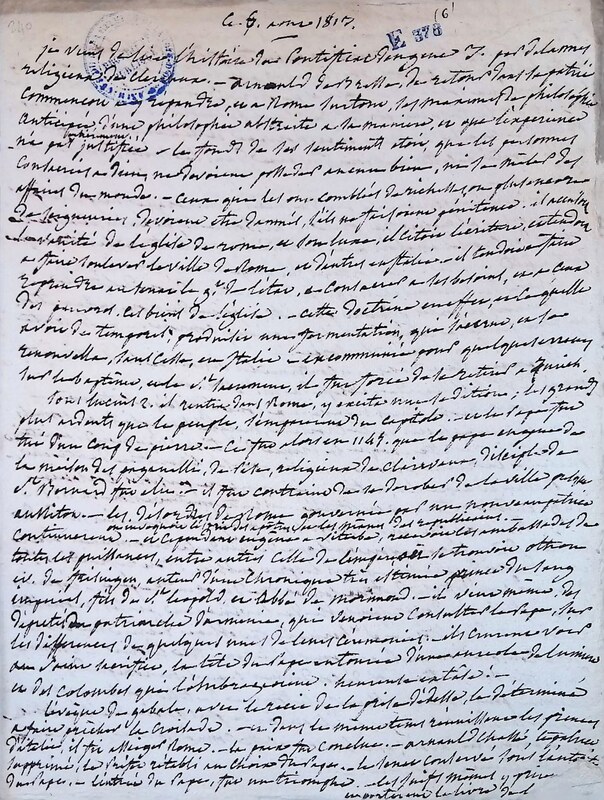 Ce 6 aout 1817.
(6
E 378
240
je viens de lire l'histoire du Pontificat d'eugene 3. par delannes
religieux de Clervaux. - arnauld de Bresse, de retour dans sa patrie
commencoit a y repandre, et a Rome surtout, les maximes de philosophie
antique, d'une philosophie abstraite a la maniere, et que l'experience
n'a pas justifiée - le fond de ses sentiments etoit, que les personnes
consacrées a dieu, ne devoient posseder aucun bien, ni se mêler des
affaires du monde. - ceux que les ont comblés de richesses, ou plus encore
de seigneuries, devoient etre damnés, s'ils ne faisoient pénitence. il accusoit
la vanité de l'eglise de rome, et son luxe, il citoit l'ecriture, et tendoit
a faire soulever la ville de Rome, et d'autres en italie - il tendoit a faire
reprendre au senat le g.t de l'etat, a consacrer a ses besoins, et a ceux
des pauvres, les biens de l'eglise. - cette doctrine en effet, en ce qu'elle
avoit de temporel, produisit une fermentation, qui s'accrut, et se
renouvella, sans cesse, en italie - excommunié pour quelques erreurs
sur le baptême, et le s.t sacrement, il fut forcé de se retirer a Zurich
sous lucius 2. il rentre dans Rome, y excite une sedition; les grands
plus ardents que le peuple, s'emparent du capitole - et le Pape fut
tué d'un coup de pierre - Ce fut alors en 1145. que le pape eugene de
la maison des paganelli, de Pise, religieux de clairvaux, disciple de
s.t Bernard fut elu - il fut contraint de se derober de la ville presque
aussitot. - les desordres de Rome gouvernée par un nouveau patrice
continuerent. - et cependant eugene a Viterbe, recevoit les ambassades de
toutes les puissances, entre autres celle de l'empire, où se trouvoit othon
ev. de freisingen, auteur d'une chronique très estimée, prince du sang
imperial, fils de s.t leopold et abbé de morimond. - il vint même des
deputés du patriarche d'armenie, qui venoient consulter le Pape, sur
les differences de quelques unes de leurs ceremonies. - ils crurent voir
au s.t sacrifice, la tete du Pape entourée d'une aureole de lumiere
et des colombes qui l'ombrageoient. heureuse extase! -
l'évêque de gabale, avec le recit de la prise d'edesse, le determina
a faire prêcher la Croisade. - et dans le même tems recueillant les forces
d'italie, il fit assieger Rome. - la paix fut conclue. - arnauld chassé, le patrice
supprimé, le Prefet retabli au choix du Pape. - le senat conservé sous l'autorité
du Pape. - l'entrée du Pape, fut un triomphe. - les juifs memes y
porterent le livre de l